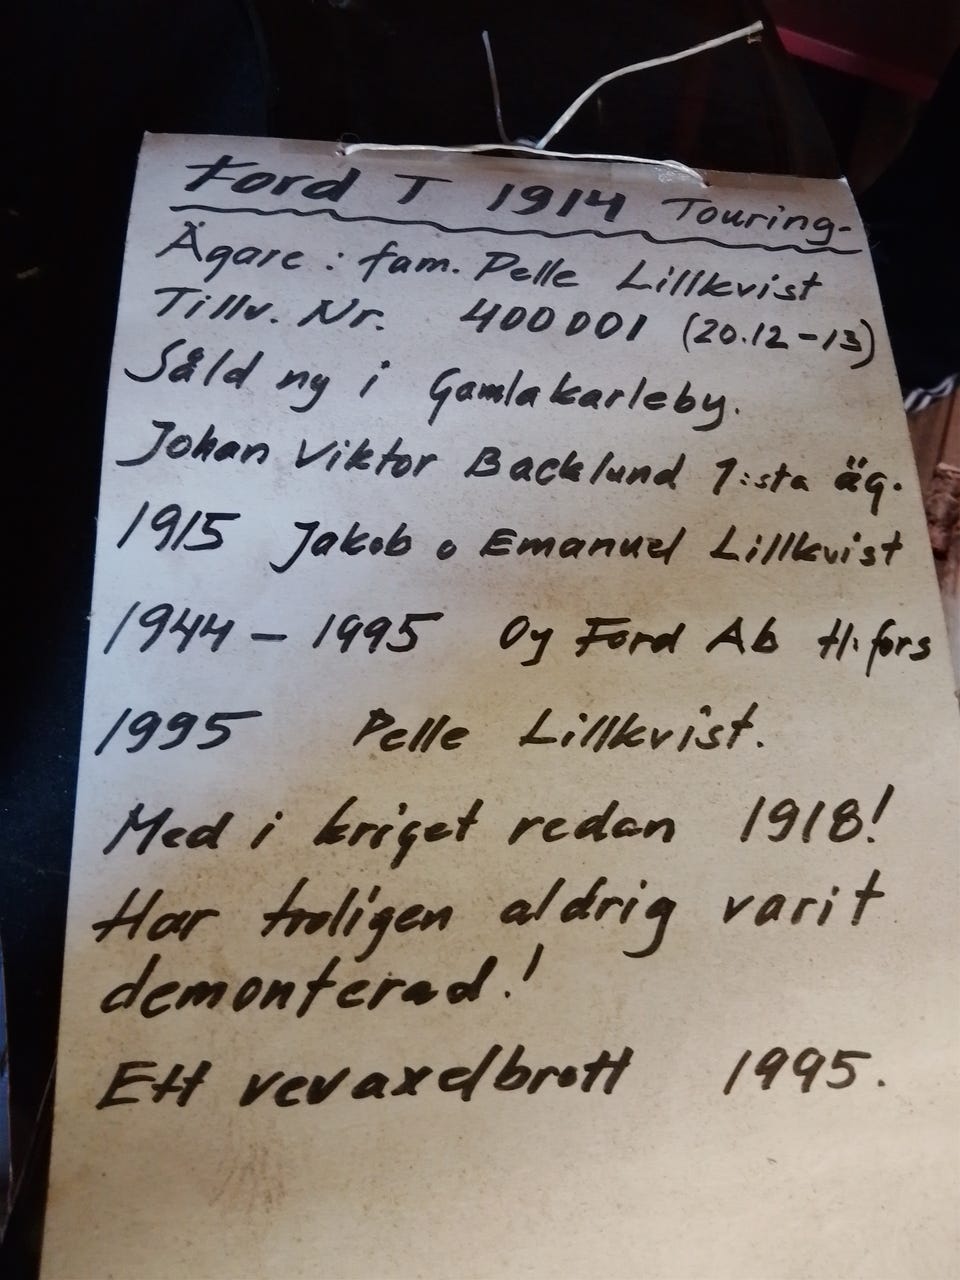 Ford T 1914 Touring-
Ägare: fam. Pelle Lillkvist
Tillv. Nr. 400001 (20.12-13)
Såld ny i Gamlakarleby.
Johan Viktor Backlund 1:sta äg.
1915 Jakob o Emanuel Lillkvist
1944 - 1995 Oy Ford Ab H:fors
1995 Pelle Lillkvist.
Med i kriget redan 1918!
Har troligen aldrig varit
demonterad!
Ett vevaxelbrott 1995.